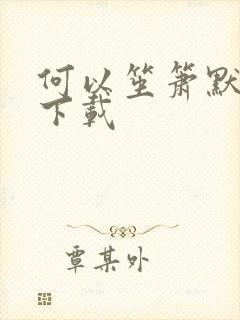 何以笙箫默
下载
覃某外